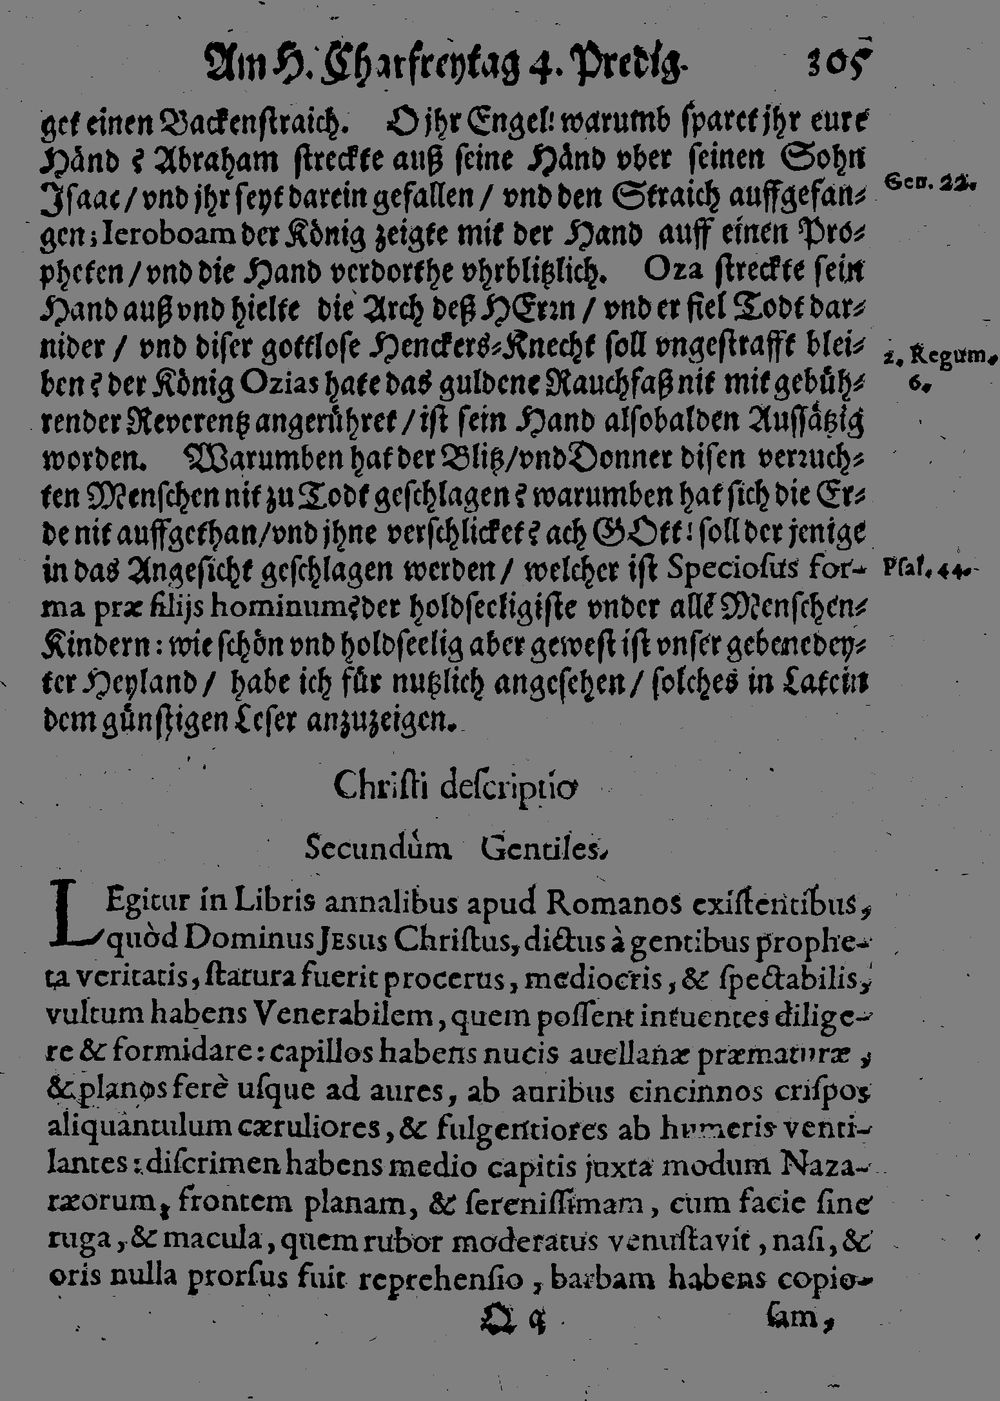 Am H. Charfreytag 4. Predig. 305
get einen Backenstraich. O jhr Engel! warumb sparet jhr eure
Händ? Abraham streckte auß seine Händ vber seinen Sohn
Isaac / vnd jhr seyt darein gefallen / vnd den Straich auffgefan-
Gen. 22.
gen; Ieroboam der König zeigte mit der Hand auff einen Pro-
pheten / vnd die Hand verdorthe vhrblitzlich. Oza streckte sein
Hand auß vnd hielte die Arch deß HErrn / vnd er fiel Todt dar-
nider / vnd diser gottlose Henckers-Knecht soll vngestrafft blei-
2. Regum.
6.
ben? der König Ozias hate das guldene Rauchfaß nit mit gebüh-
render Reverentz angerühret / ist sein Hand alsobalden Aussätzig
worden. Warumben hat der Blitz / vnd Donner disen verruch-
ten Menschen nit zu Todt geschlagen? warumben hat sich die Er-
de nit auffgethan / vnd jhne verschlicket? ach GOtt! soll der jenige
in das Angesicht geschlagen werden / welcher ist Speciosus for-
Psal. 44.
ma præ filijs hominum? der holdseeligiste vnder allē Menschen-
Kindern: wie schön vnd holdseelig aber gewest ist vnser gebenedey-
ter Heyland / habe ich für nutzlich angesehen / solches in Latein
dem günstigen Leser anzuzeigen.
Christi descriptio
Secundùm Gentiles.
LEgitur in Libris annalibus apud Romanos existentibus,
quòd Dominus JEsus Christus, dictus à gentibus prophe-
ta veritatis, statura fuerit procerus, mediocris, & spectabilis,
vultum habens Venerabilem, quem possent intuentes dilige-
re & formidare: capillos habens nucis avellanæ præmaturæ,
& planos ferè usque ad aures, ab auribus cincinnos crispos
aliquantulum cæruliores, & fulgentiores ab humeris venti-
lantes: discrimen habens medio capitis juxta modum Naza-
ræorum, frontem planam, & serenissimam, cum facie sine
ruga, & macula, quem rubor moderatus venustavit, nasi, &
oris nulla prorsus fuit reprehensio, barbam habens copio-
Q q sam,